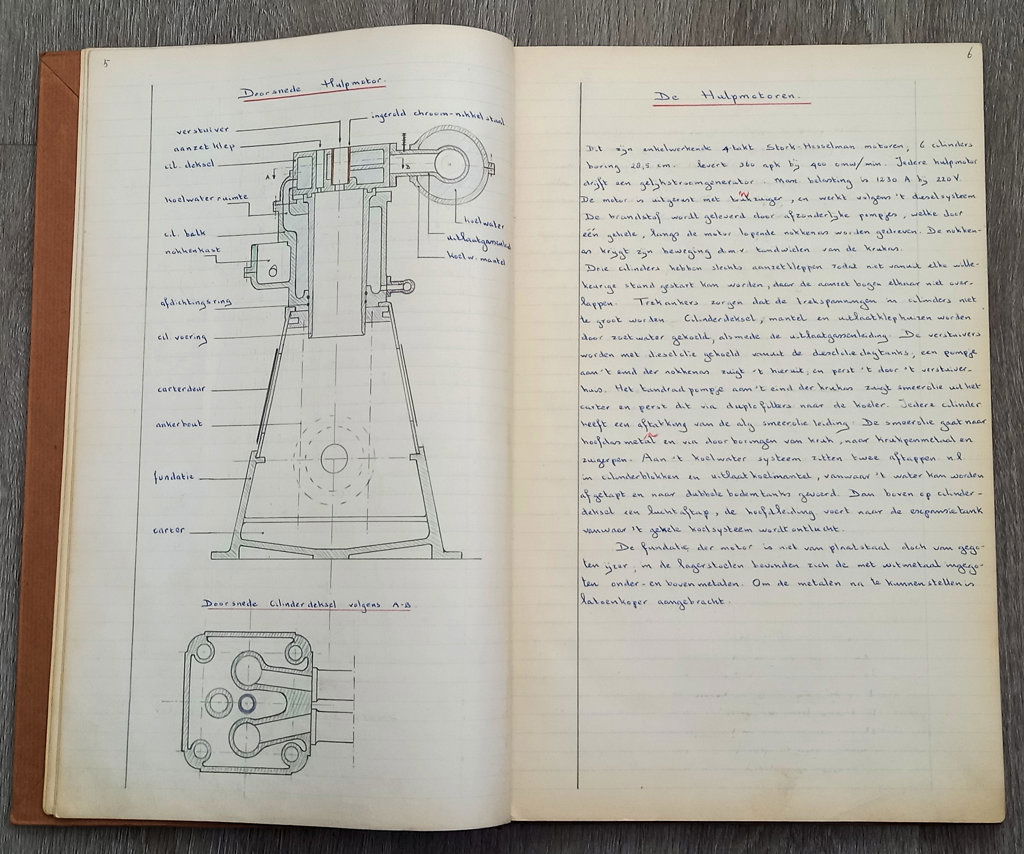 5
Doorsnede Hulpmotor.
verstuiver
aanzetklep
cil. deksel
ingerold chroom-nikkel staal
A
B
koelwaterruimte
cil. balk
nokkenkast
koelwater
uitlaatgassenleid
koelw. mantel
afdichtingsring
cil voering
carterdeur
ankerbout
fundatie
carter
Doorsnede Cilinderdeksel volgens A-B
6
De Hulpmotoren.
Dit zijn enkelwerkende 4-takt Stork-Hesselman motoren, 6 cilinders
boring 28,5 cm. levert 360 apk bij 400 omw/min. Iedere hulpmotor
drijft een gelijkstroomgenerator. Max. belasting is 1230 A bij 220V.
De motor is uitgerust met , en werkt volgens 't dieselsysteem
De brandstof wordt geleverd door afzonderlijke pompjes, welke door
één gehele, langs de motor lopende nokkenas worden gedreven. De nokken-
as krijgt zijn beweging d.m.v. tandwielen van de krukas.
Drie cilinders hebben slechts aanzetkleppen zodat niet vanuit elke wille-
keurige stand gestart kan worden, daar de aanzet bogen elkaar niet over-
lappen. Trekankers zorgen dat de trekspanningen in cilinders niet
te groot worden. Cilinderdeksel, mantel en uitlaatklephuizen worden
door zoetwater gekoeld, alsmede de uitlaatgassenleiding. De verstuivers
worden met dieselolie gekoeld vanuit de dieseloliedagtanks, een pompje
aan 't eind der nokkenas zuigt 't hieruit, en perst 't door 't verstuiver-
huis. Het tandradpompje aan 't eind der krukas zuigt smeerolie uit het
carter en perst dit via duplofilters naar de koeler. Iedere cilinder
heeft een aftakking van de alg smeerolie leiding. De smeerolie gaat naar
hoofdasmetal en via doorboringen van kruk, naar krukpenmetaal en
zuigerpen. Aan 't koelwater systeem zitten twee aftappen n.l
in cilinderblokken en uitlaatkoelmantel, vanwaar 't water kan worden
afgetapt en naar dubbele bodemtanks gevoerd. Dan boven op cilinder-
deksel een luchtaftap, de hoofdleiding voert naar de expansietank
vanwaar 't gehele koelsysteem wordt ontlucht.
De fundatie der motor is niet van plaatstaal doch van gego-
ten ijzer, in de lagerstoelen bevinden zich de met witmetaal ingego-
ten onder- en bovenmetalen. Om de metalen na te kunnen stellen is
latoenkoper aangebracht.